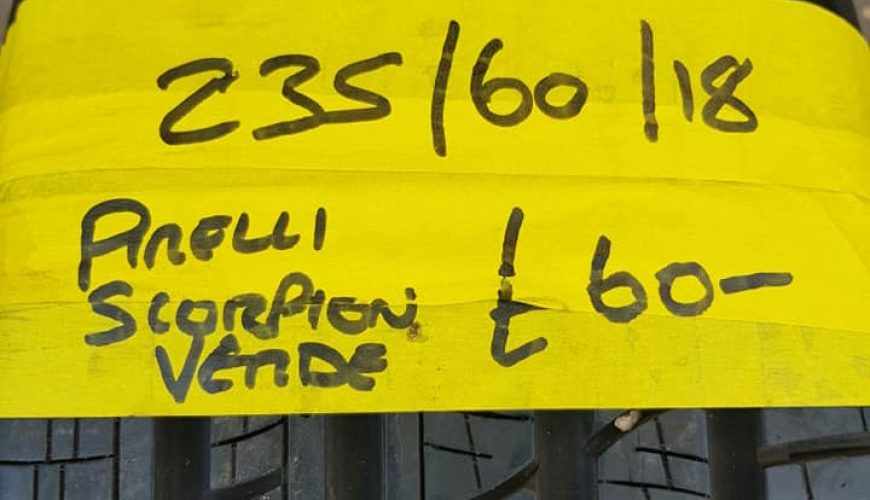 235/60/18
PIRELLI
SCORPION
VERDE
£60-